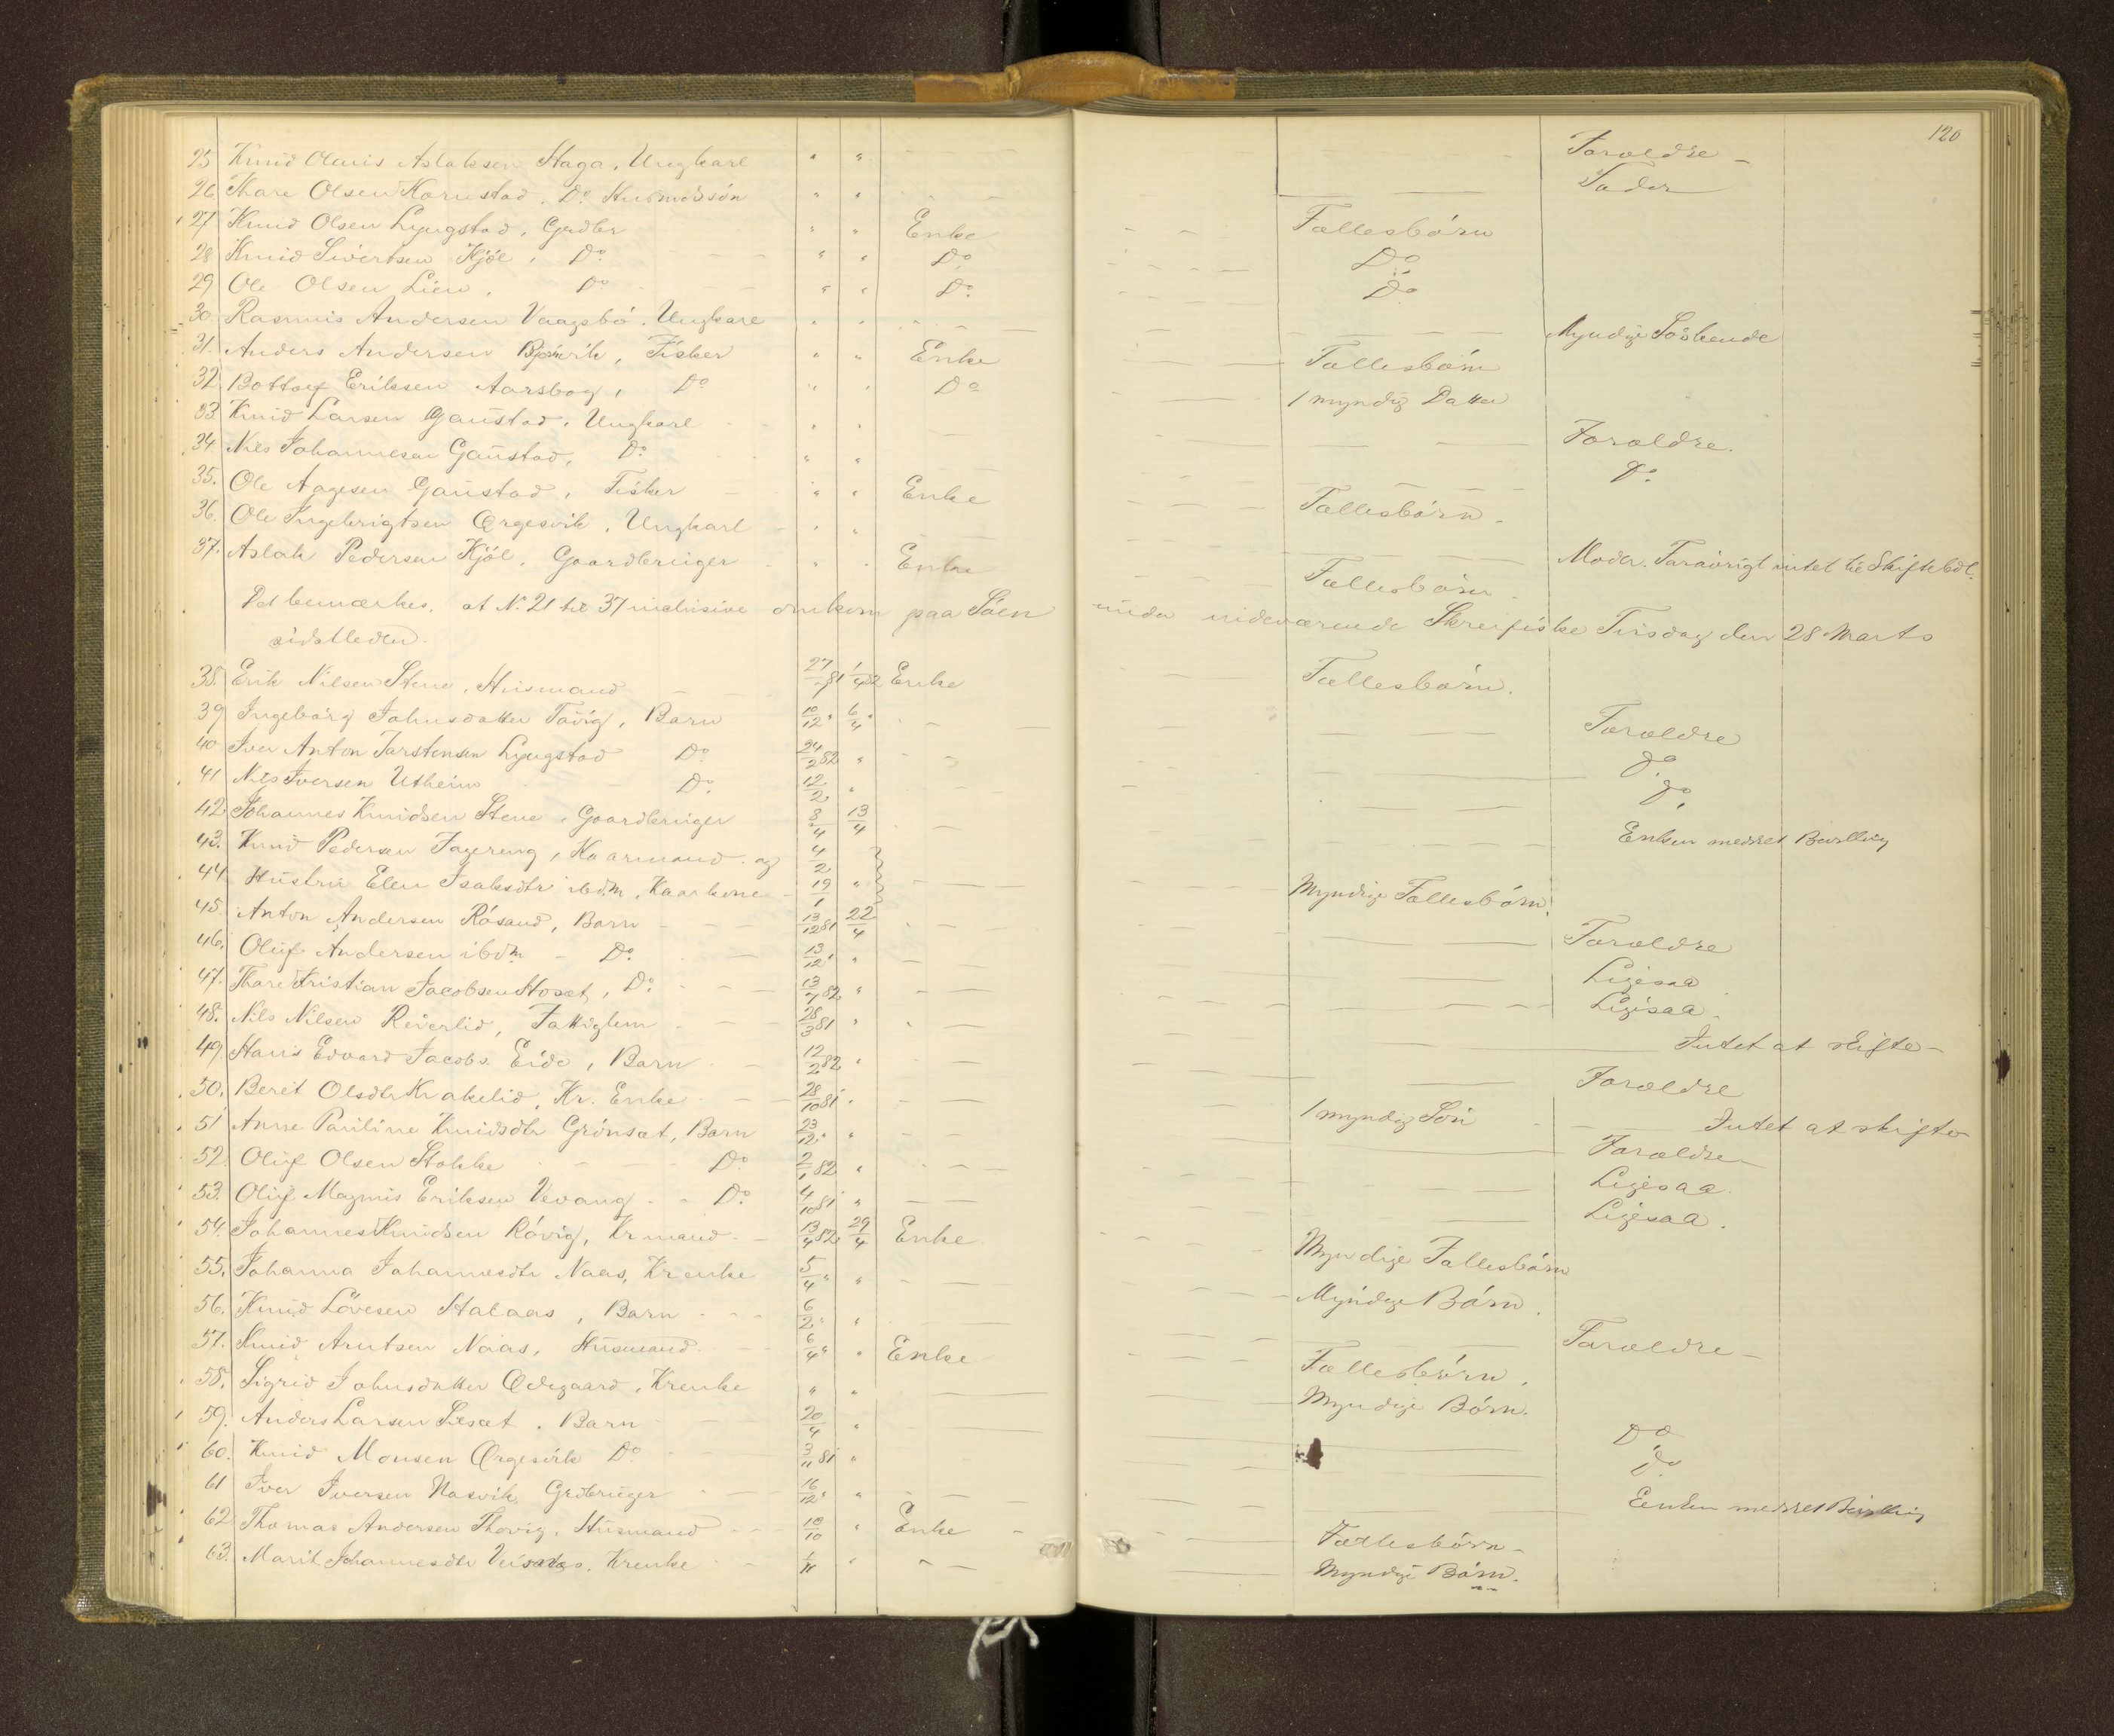 120
25 Knud Olaus Aslaksen Haga, Ungkarl " " Forældre
26 Thore Olsen Kornstad, Do Husmdssön " " Fader
27 Knud Olsen Lyngstad, Grdbr " " Enke Fællesbörn
28 Knud Sivertsen Kjöl, Do " " Do Do
29 Ole Olsen Lien, Do " " Do Do
30. Rasmus Andersen Vaagsbö, Ungkarl " " Myndige Södskende
31. Anders Andersen Bjørnvik, Fisker " " Enke Fællesbörn
32 Bottolf Eriksen Aarsbog, Do " " Do 1 myndig Datter
33. Knud Larsen Gaustad, Ungkarl " " Forældre.
34 Nils Johannesen Gaustad, Do " " Do
35. Ole Aagesen Gaustad, Fisker " " Enke Fællesbörn.
36. Ole Ingebrigtsen Ørgesvik, Ungkarl " " Moder. Forövrigt intet til Skiftebdl.
37. Aslak Pedersen Kjöl, Gaardbruger " " Enke Fællesbörn.
Det bemærkes, at No 21 til 37 inclusive omkom paa Söen under nuværende Skreifiske Tirsdag den 28 Marts
sidstleden.
38. Erik Nilsen Stene, Husmand 27/7 81 1/4 82 Enke Fællesbörn.
39 Ingeborg Johnsdatter Tövig, Barn 10/12 " 6/4 " Forældre
40 Iver Anton Torstensen Lyngstad Do 24/2 82 " Do
41 Nils Iversen Utheim Do 12/2 " Do
42. Johannes Knudsen Stene, Gaardbruger 8/4 13/4 Enken meddelt Bevilling
43. Knud Pedersen Fagereng, Kaarmand og 4/2
44 Hustru Elen Isaksdtr ibdm, Kaarkone 19/1 " Myndige Fællesbörn.
45. Anton Andersen Rösand, Barn 13/12 81 22/4 Forældre
46. Oluf Andersen ibdm Do 13/12 " " Ligesaa
47. Thore Kristian Jacobsen Hoset, Do 13/1 82 " Ligesaa.
48. Nils Nilsen Reverlid, Fattiglem 28/3 81 " Intet at skifte
49. Hans Edvard Jacobs. Eide, Barn 12/2 82 " Forældre
50. Beret Olsdtr Krakelid, Kr. Enke 28/10 81 " 1 myndig Sön Intet at skifte
51 Anne Pauline Knudsdtr Grönsæt, Barn 23/12 " " Forældre
52. Oluf Olsen Stokke Do 2/1 82 " Ligesaa.
53. Oluf Magnus Eriksen Vevang Do 4/10 81 " Ligesaa.
54. Johannes Knudsen Rövig, Krmand 13/4 82 29/4 Enke Myndige Fællesbörn
55. Johanna Johannesdtr Naas, Krenke 5/4 " " Myndige Börn.
56. Knud Lövesen Stalaas, Barn 6/2 " " Forældre
57. Knud Arntsen Naas, Husmand 6/4 " " Enke Fællesbörn.
58. Sigrid Johnsdatter Ødegaard, Krenke " " Myndige Börn.
59. Anders Larsen Sæsæt, Barn 20/4 " Do
60. Knud Monsen Ørgesvik Do 3/11 81 " Do
61 Iver Iversen Nasvik, Grdbruger 16/12 " " Enken meddelt Bevilling
62 Thomas Andersen Thovig, Husmand 10/10 " Enke Fællesbörn
63. Marit Johannesdtr, Krenke 1/11 " Myndige Börn.